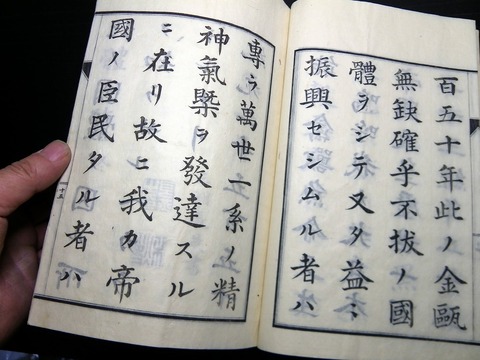 百五十年此ノ金甌
無缺確乎不拔ノ國
體ヲシテ又タ益〻
振興セシムル者ハ
專ラ萬世一系ノ精
神氣槩ヲ發達スル
ニ在リ故ニ我カ帝
國ノ臣民タル者ハ